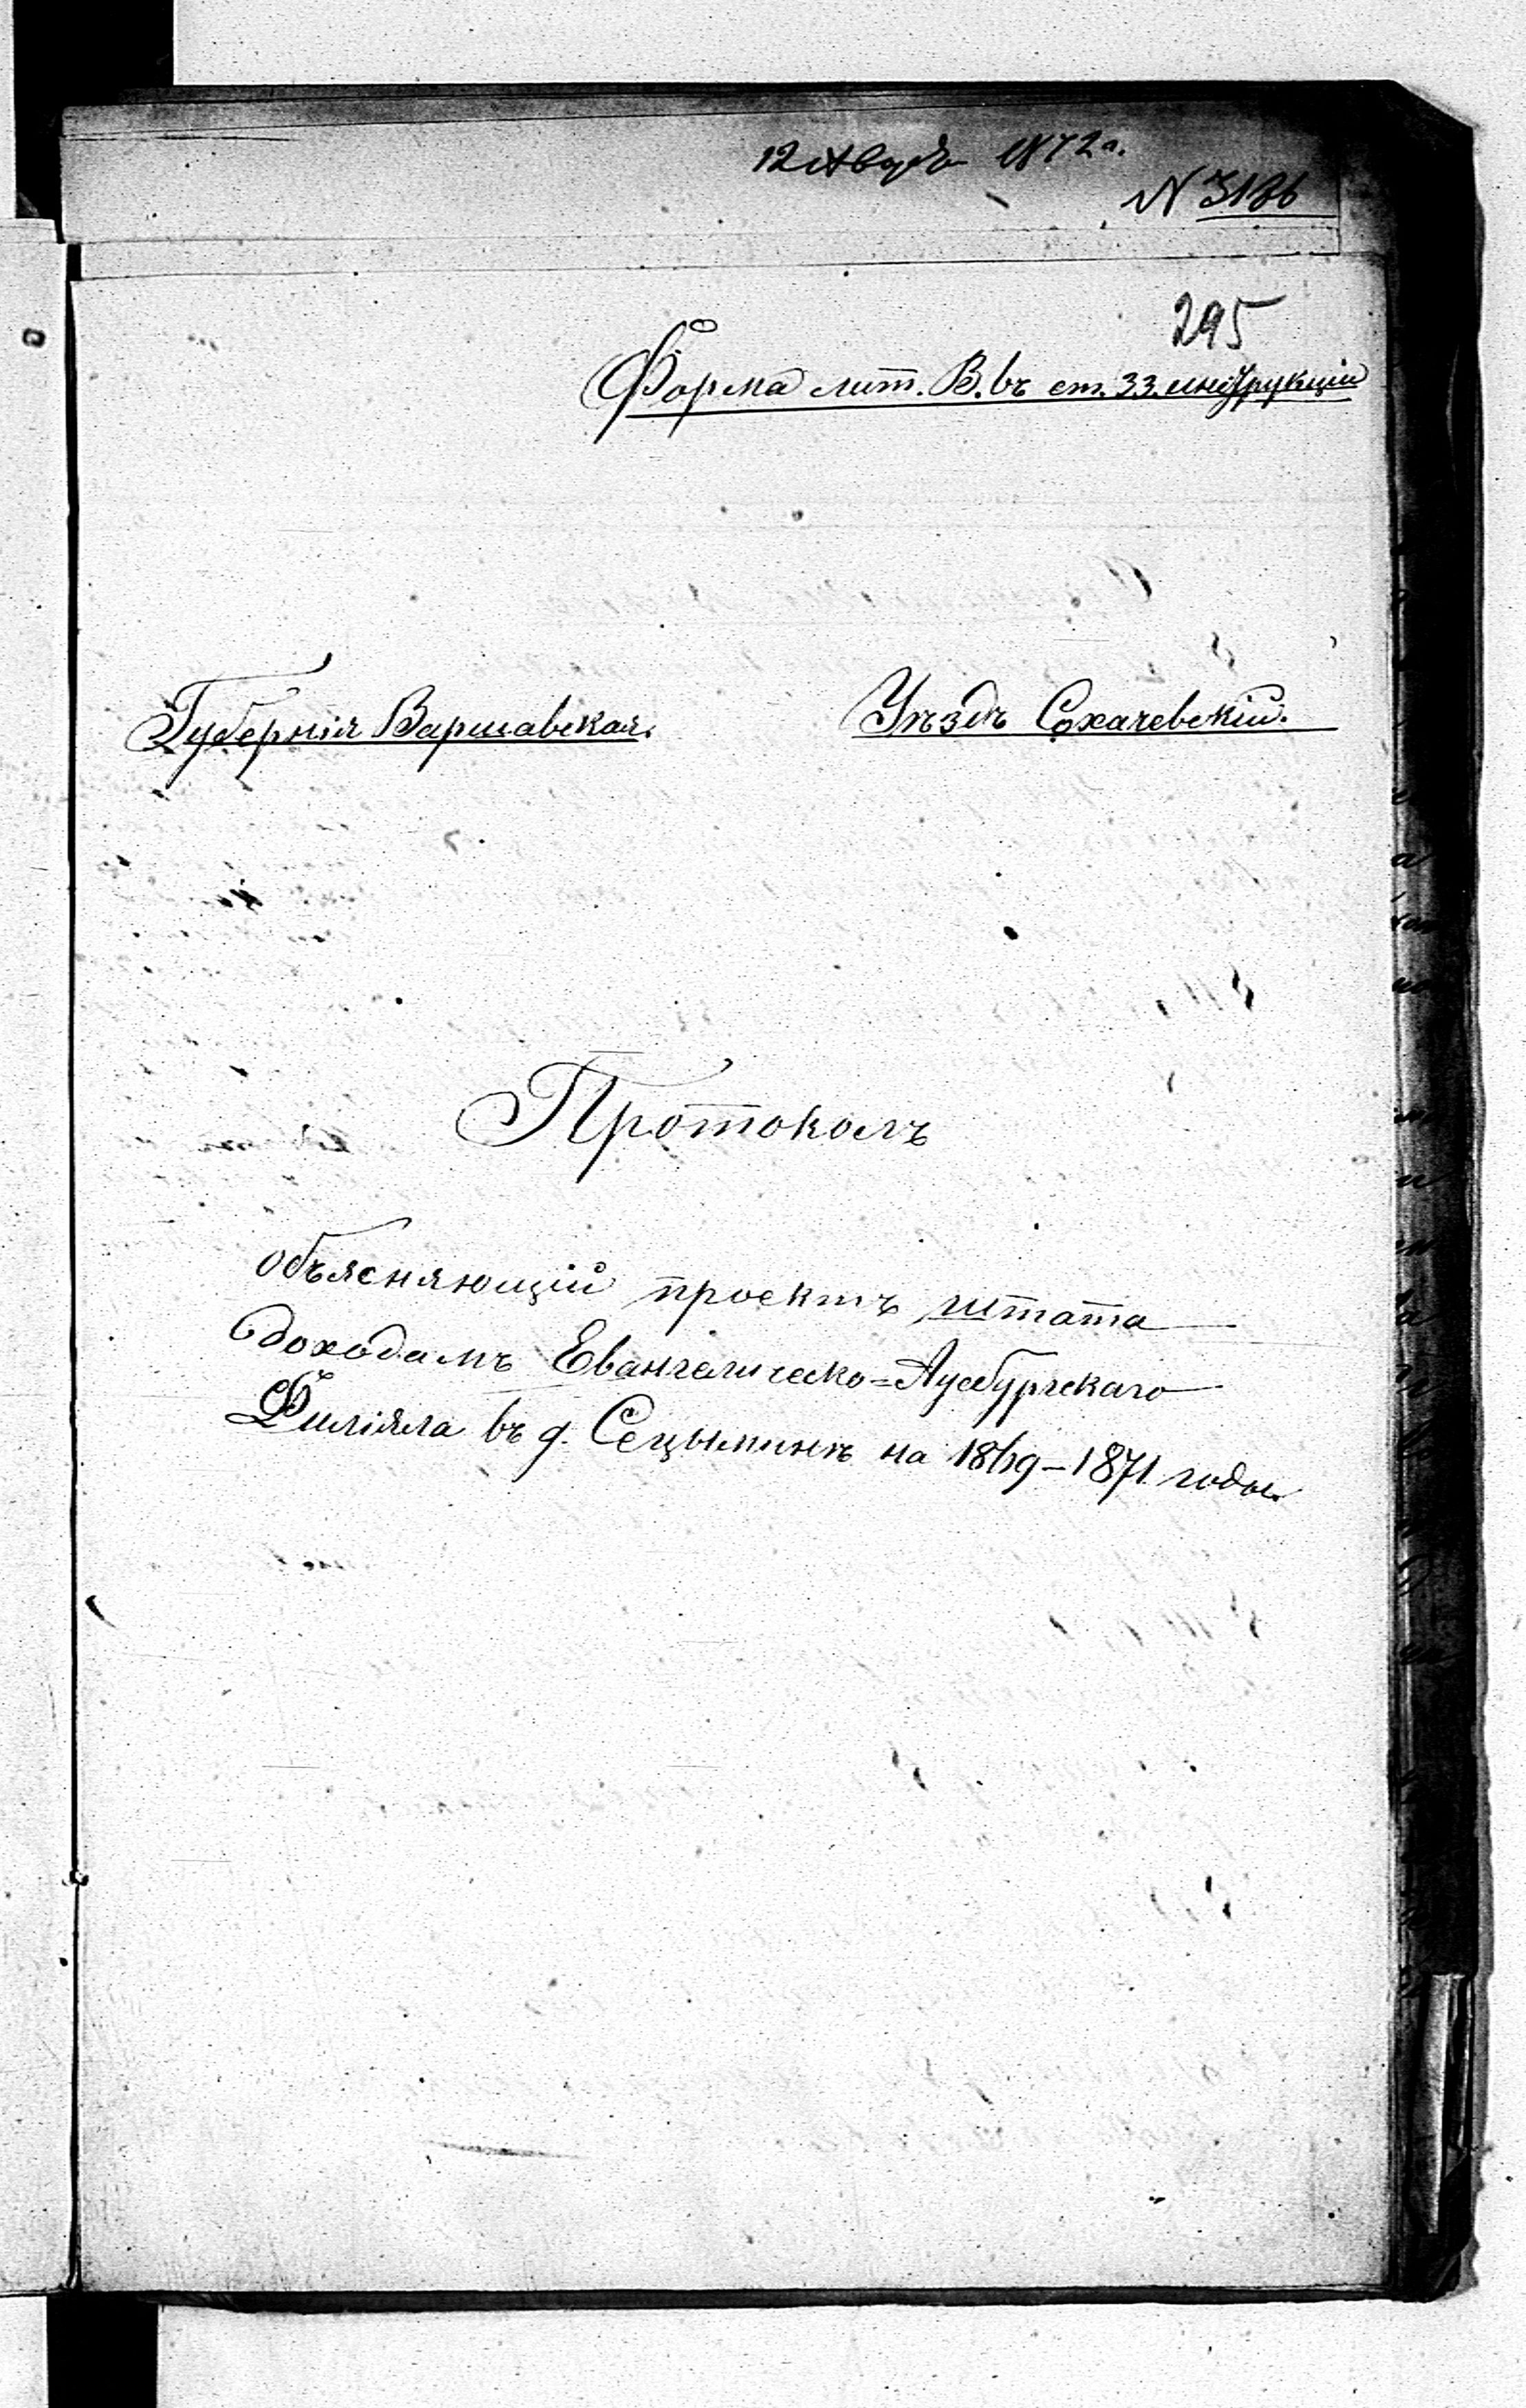 12 Августа 1872 г.
N 3186
295
Форма лит. В. въ ст. 33. инструкціи
Губернія Варшавская.
Уѣздъ Сохачевскій.
Протоколъ
объясняющій проектъ штата
доходамъ Евангелическо=Аугсбургскаго
Филіяла въ д. Сецыминѣ на 1869–1871 годы.